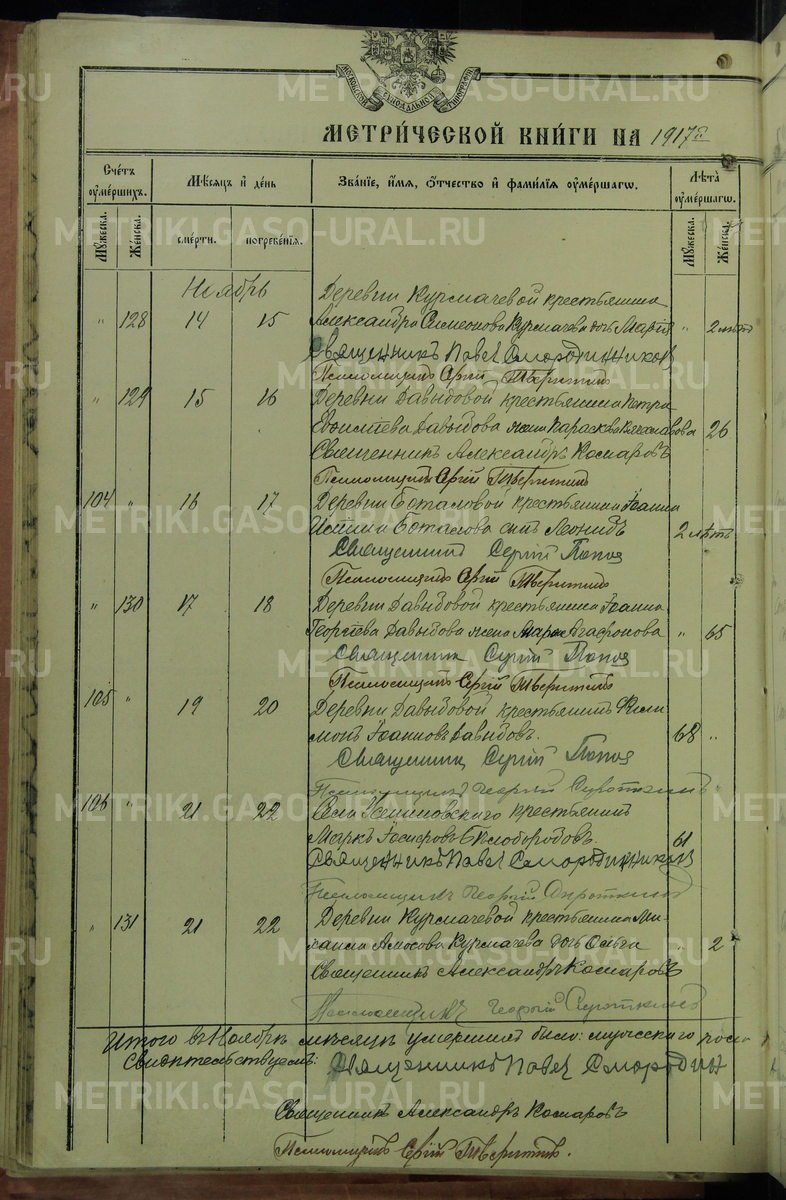 МОСКОВСКОЙ СѴНОДАЛЬНОЙ ТИПОГРАФІИ
МЕТРИ́ЧЕСКОЙ КНИ́ГИ НА 1917 г.
Сче́тъ ᲂу҆ме́ршихъ.
Мѣ́сяцъ и҆ де́нь
Зва́нїе, и҆́мѧ, ѻ҆́тчество и҆ фами́лїѧ ᲂу҆ме́ршагѡ.
Лѣ́та ᲂу҆ме́ршагѡ.
Мꙋ́жеска. Же́нска. сме́рти. погребе́нїѧ. Мꙋ́жеска. Же́нска.
Ноябрь Деревни Курмачевой крестьянина
" 128 14 15 Александра Симеонова Курмачева дочь Марія " 2 лѣтъ
Священникъ Павел Смородинников
Псаломщикъ Сергій Тверитинъ
" 129 15 16 Деревни Давыдовой крестьянина Петра
Давыдова жена Параскева Вячеславова 26
Священникъ Александръ Комаровъ
Псаломщикъ Сергій Тверитинъ
104 " 16 17 Деревни Боталовой крестьянина Іоанна
Боталова сынъ Леонидъ 2 лѣтъ
Священникъ Сергій Попов
Псаломщикъ Сергій Тверитинъ
" 130 17 18 Деревни Давыдовой крестьянина Іоанна
Георгіева Давыдова жена Марія Агафонова " 65
Священникъ Сергій Попов
Псаломщикъ Сергій Тверитинъ
105 " 19 20 Деревни Давыдовой крестьянинъ Фили-
монъ Іоанновъ Давыдовъ. 68 "
Священникъ Сергій Попов
Псаломщикъ Георгій Сироткинъ
106 " 21 22 Села крестьянинъ
Маркъ Бѣлобородовъ. 61
Священникъ Павел Смородинников
Псаломщикъ Георгій Сироткинъ
" 131 21 22 Деревни Курмачевой крестьянина Ми-
хаила Амосова Курмачева дочь Ольга " 2
Священникъ Александръ Комаровъ
Псаломщикъ Георгій Сироткинъ
Итого въ Ноябрѣ мѣсяцѣ умершихъ было: мужескаго пола
Свидѣтельствуемъ: Священникъ Павел Смородин
Священникъ Александръ Комаровъ
Псаломщикъ Сергій Тверитинъ.
METRIKI.GASO-URAL.RU